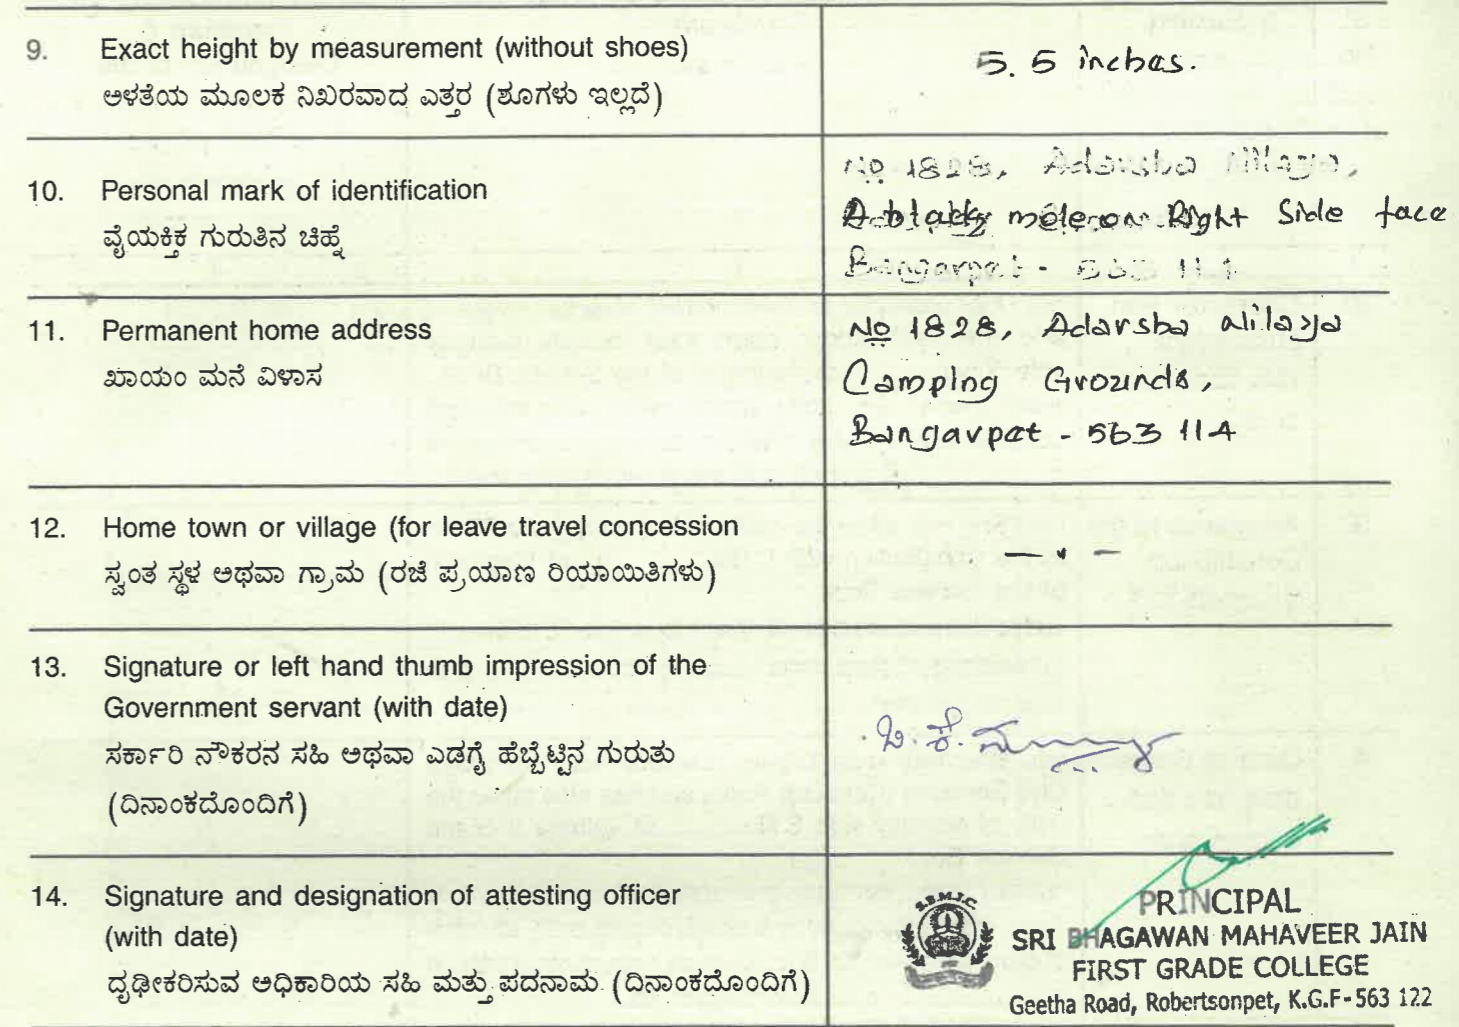 9. Exact height by measurement (without shoes)
ಅಳತೆಯ ಮೂಲಕ ನಿಖರವಾದ ಎತ್ತರ (ಶೂಗಳು ಇಲ್ಲದೆ)
5.5 inches.
10. Personal mark of identification
ವೈಯಕ್ತಿಕ ಗುರುತಿನ ಚಿಹ್ನೆ
No 1828, Adarsha Nilaya,
A black mole on Right Side face
Bangarpet - 563 114
11. Permanent home address
ಖಾಯಂ ಮನೆ ವಿಳಾಸ
No 1828, Adarsha Nilaya
Camping Grounds,
Bangarpet - 563 114
12. Home town or village (for leave travel concession
ಸ್ವಂತ ಸ್ಥಳ ಅಥವಾ ಗ್ರಾಮ (ರಜೆ ಪ್ರಯಾಣ ರಿಯಾಯಿತಿಗಳು)
13. Signature or left hand thumb impression of the
Government servant (with date)
ಸರ್ಕಾರಿ ನೌಕರನ ಸಹಿ ಅಥವಾ ಎಡಗೈ ಹೆಬ್ಬೆಟ್ಟಿನ ಗುರುತು
(ದಿನಾಂಕದೊಂದಿಗೆ)
14. Signature and designation of attesting officer
(with date)
ದೃಢೀಕರಿಸುವ ಅಧಿಕಾರಿಯ ಸಹಿ ಮತ್ತು ಪದನಾಮ (ದಿನಾಂಕದೊಂದಿಗೆ)
S.B.M.J.C
PRINCIPAL
SRI BHAGAWAN MAHAVEER JAIN
FIRST GRADE COLLEGE
Geetha Road, Robertsonpet, K.G.F-563 122